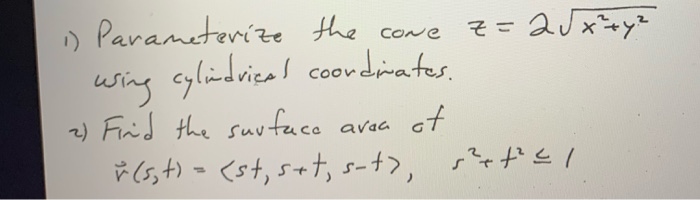 1) Parameterize the cone z = 2√x²+y²
using cylindrical coordinates.
2) Find the surface area of
r⃗(s,t) = <st, s+t, s-t>, s²+t² ≤ 1